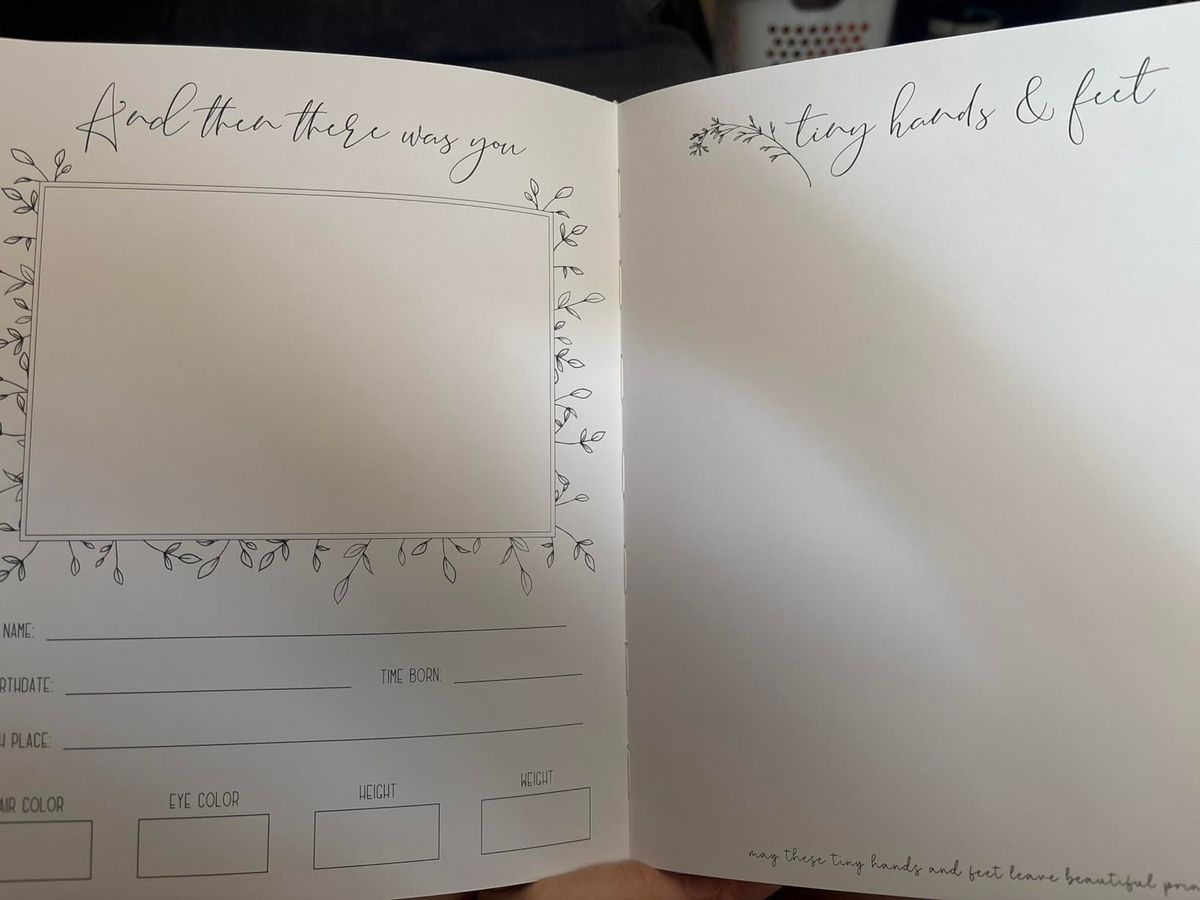 And then there was you
NAME:
RTHDATE:
TIME BORN:
H PLACE:
AIR COLOR
EYE COLOR
HEIGHT
WEIGHT
tiny hands & feet
may these tiny hands and feet leave beautiful prin